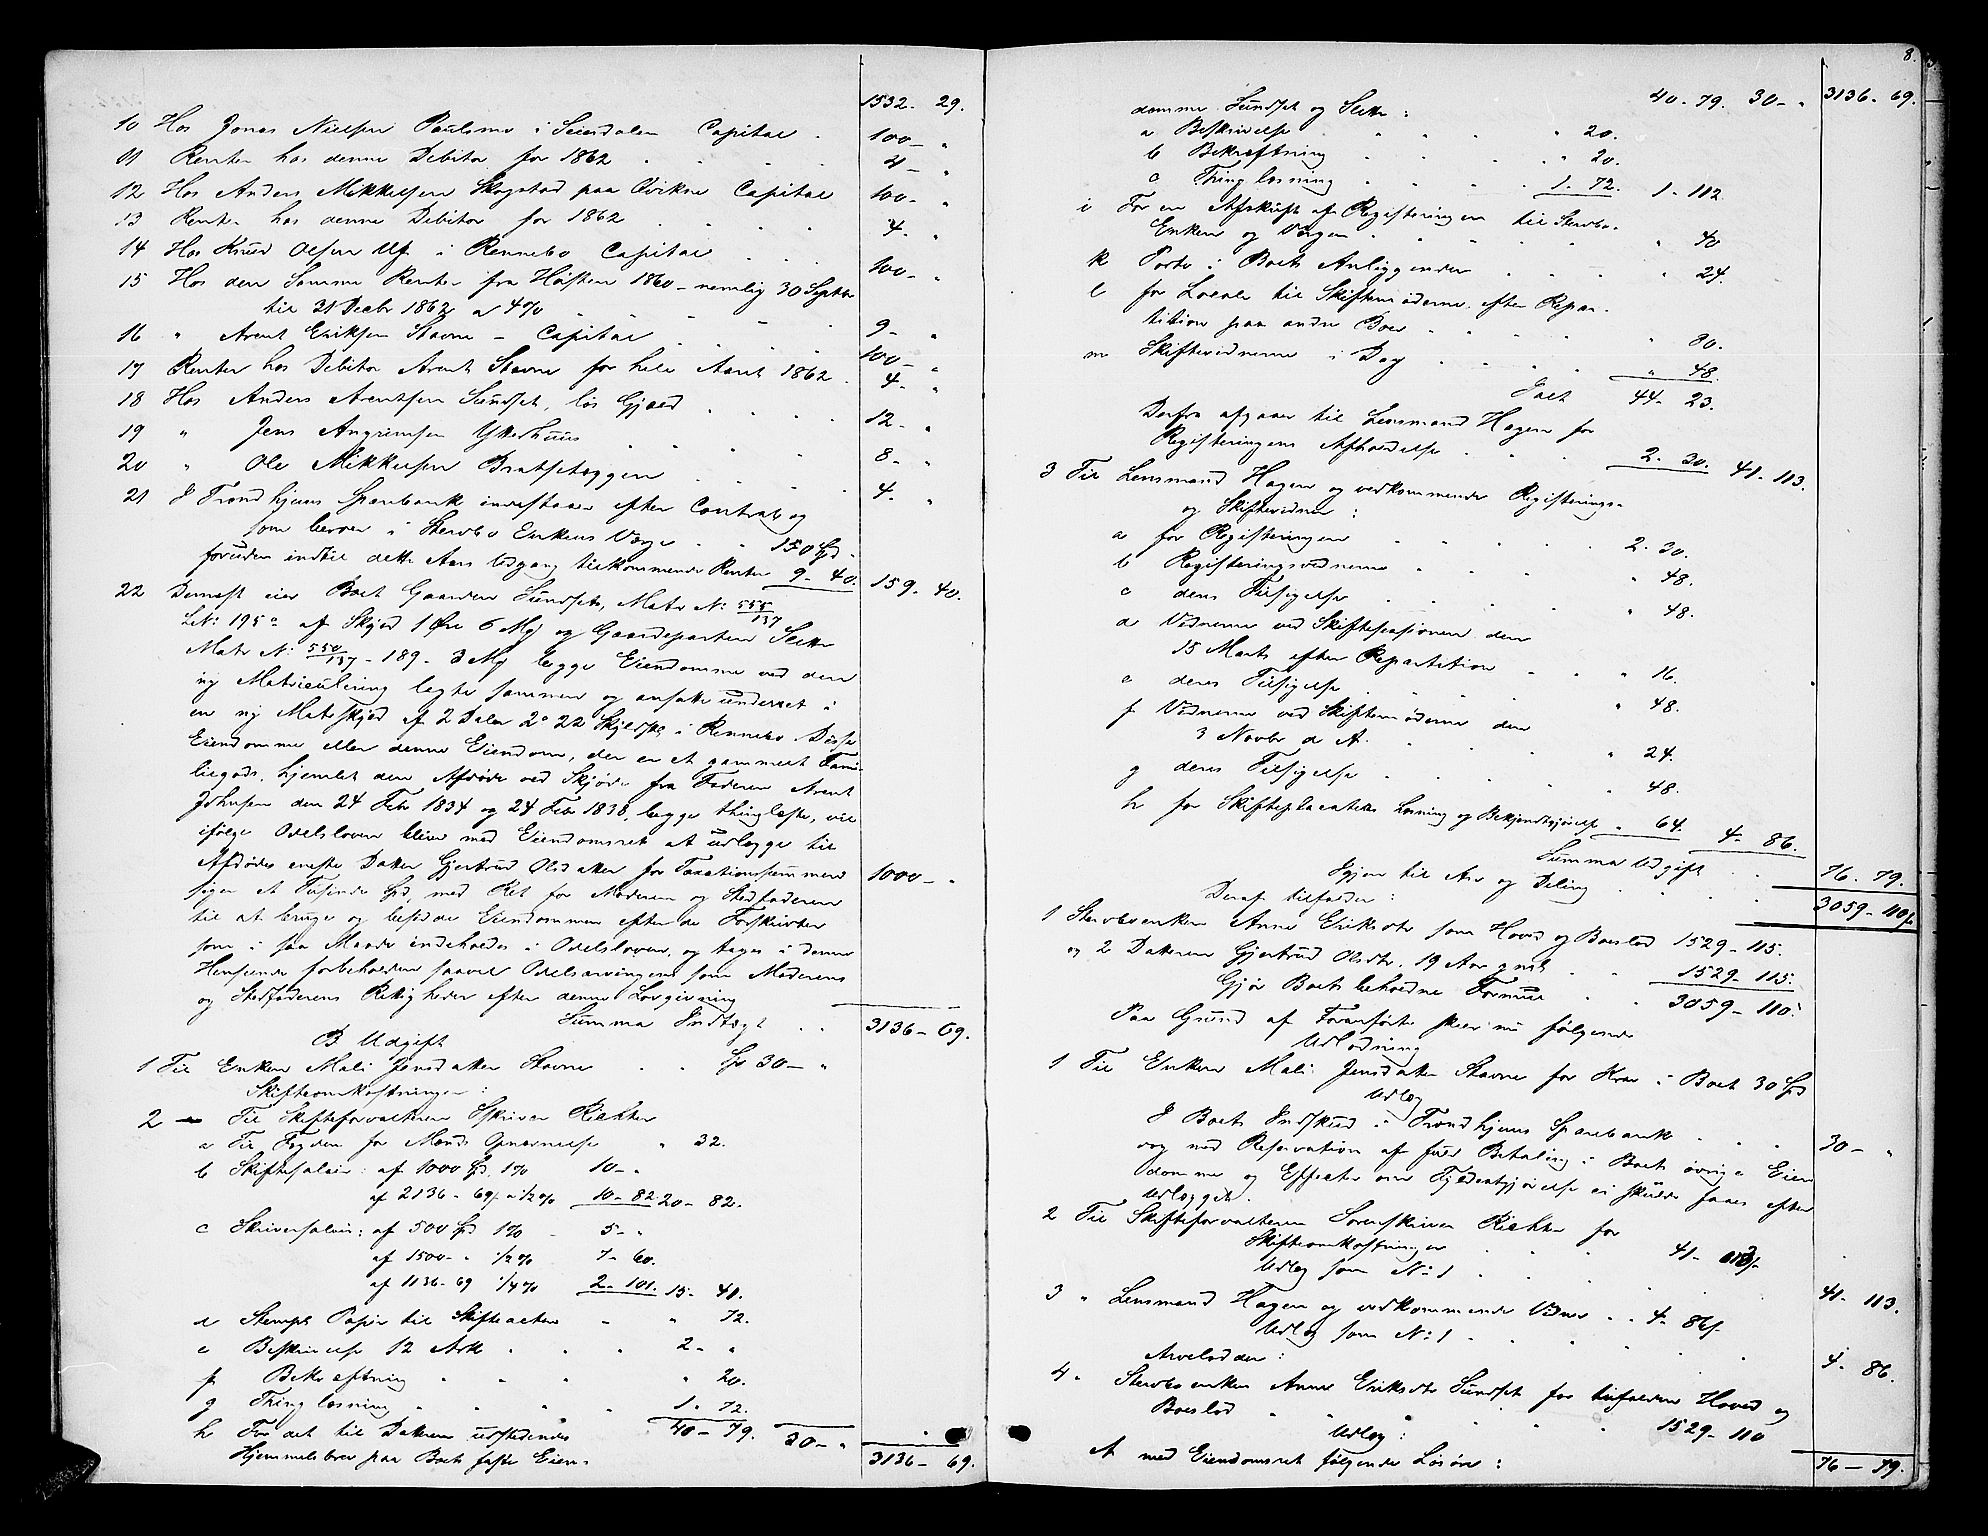 1532- 29.
10 Hos Jonas Nielsen Paulsmo i Sundalen Capital . 100- „
11 Renter hos denne Debitor for 1862 . . . 4- „
12 Hos Anders Mikkelsen Skogstad paa Qvikne Capital 100- „
13 Renter hos denne Debitor for 1862 . . . 4. „
14 Hos Knud Olsen Uf i Rennebo Capital . . . 100- „
15 Hos den Samme Renter fra Høsten 1860 - nemlig 30 Septbr
til 31 Decbr 1862 a 4% . . . 9- „
16 „ Arent Eriksen Stavne - Capital . . . 100- „
17 Renter hos Debitor Arent Stavne for hele Aaret 1862 . 4- „
18 Hos Anders Arentsen Sundset, løs Gjæld . . . 12- „
19 „ Jens Angrimsen Ykerhuus . . . 8- „
20 „ Ole Mikkelsen Bratsetoggen . . . 4. „
21 I Trondhjems Sparebank indestaaer efter Contrab og
som beror i Stervbo Enkens Værge . . 150 Spd.
foruden indtil dette Aars Udgang tilkommende Renter 9- 40. 159. 40.
22 Dernæst eier Boet Gaarden Sundset, Matr No: 555/137
LNo: 195a af Skyld 1 Øre 6 Mg og Gaardeparten Slette
Matr No: 550/137 - 189. 3 Mg begge Eiendomme ved den
ny Matriculering lagte sammen og ansatte underret i
en ny Matrskyld af 2 Daler 2o 22 Skill i Rennebo. Disse
Eiendomme eller denne Eiendom, der er et gammelt Fami-
liegods, hjemlet den Afdøde ved Skjøde fra Faderen Arent
Johnsen den 24 Febr 1834 og 24 Febr 1838, begge thinglæste, vil
ifølge Odelsloven blive med Eiendomsret at udlægge til
Afdødes eneste Datter Gjertrud Olsdatter for Taxationssummen
siger et Tusinde Spd, med Ret for Moderen og Stedfaderen 1000- „
til at bruge og besidde Eiendommen efter de Forskrifter
som i saa Maade indeholdes i Odelsloven, og tages i denne
Henseende forbeholden saavel Odelsarvingens som Moderens
og Stedfaderens Rettigheder efter denne Lovgivning
Summa Indtægt . . 3136- 69.
B Udgift
1 Til Enken Mali Jensdatter Stavne . . Spd 30- „
Skifteomkostninger :
2 - Til Skifteforvalteren SSkriver Richter
a Til Fogden for Mands Opnævnelse „ 32.
b Skiftesalair: af 1000 Spd. 1% 10- „
af 2136- 69/ a 1/2% 10- 82 20- 82.
c Skriversalair: af 500 Spd 1% - 5- „
af 1500- „ 1/2% 7- 60.
af 1136- 69 1/4% 2- 101. 15- 41.
d Stempl Papir til Skifteacten - „ 72.
e Beskrivelse 12 Ark . . . 2- „
f Bekræftning . . . „ 20.
g Thinglæsning . . . 1. 72.
h For det til Datteren udstedendes 40- 79. 30- „
Hjemmelsbrev paa Boets faste Eien- 3136- 69.
8.
domme Sundset og Slette : 40. 79. 30- „ 3136- 69.
a Beskrivelse . . . „ 20.
b Bekræftning . . . „ 20.
c Thinglæsning . . . 1. 72. 1- 112.
i For en Afskrift af Registeringen til Stervbo-
Enken og Værgen . . . „ 40
k Porto i Boets Anliggender . . . „ 24.
l for Locale til Skiftemøderne efter Repar-
tition paa andre Boer . . . „ 30.
m Skiftevidnerne i Dag . . . „ 48.
Ialt 44- 23.
Derfra afgaaer til Lensmand Hagen for
Registeringens Afholdelse . . . 2. 30. 41- 113.
3 Til Lensmand Hagen og vedkommende Registerings-
og Skiftevidner :
a for Registeringen . . . 2. 30.
b Registeringsvidnerne . . . „ 48.
c deres Tilsigelse . . . „ 48.
d Vidnerne ved Skiftesessionen den
15 Marts efter Repartition . . „ 16.
e deres Tilsigelse . . . „ 48.
f Vidnerne ved Skiftemøderne den
3 Novbr d. A. . . . „ 24.
g deres Tilsigelse . . . „ 48.
h for Skifteplacatets Læsning og Bekjendtgjørelse „ 64. 4- 86.
Summa Udgift . . 76. 79.
Igjen til Arv og Deling . . . 3059- 110/
Deraf tilfalder :
1 Stervboenken Anne Eriksdtr som Hoved og Boeslod 1529- 115.
og 2 Datteren Gjertrud Olsdtr. 19 Aar gml . . 1529- 115.
Gjør Boets beholdne Formue . . 3059- 110.
Paa Grund af Foranførte skeer nu følgende
Udlodning
1 Til Enken Mali Jensdatter Stavne for Krav i Boet 30 Spd
Udlæg
I Boets Indskud i Trondhjems Sparebank . . . 30- „
dog med Reservation af fuld Betaling i Boets øvrige Eien
domme og Effecter om Fyldestgjørelse ei skulde faaes efter
Udlægget.
2 Til Skifteforvalteren Sorenskriver Richter for
Skifteomkostninger . . . 41- 113/
Udlæg som No: 1 . . . 41- 113.
3 „ Lensmand Hagen og vedkommende Vidner . . 4- 86/.
Udlæg som No: 1 . . . 4- 86.
Arvelodder :
4 „ Stervboenken Anne Eriksdtr Sundset for tilfalden Hoved og
Boeslod . . . 1529- 110
Udlæg :
A med Eiendomsret følgende Løsøre : 76- 79.